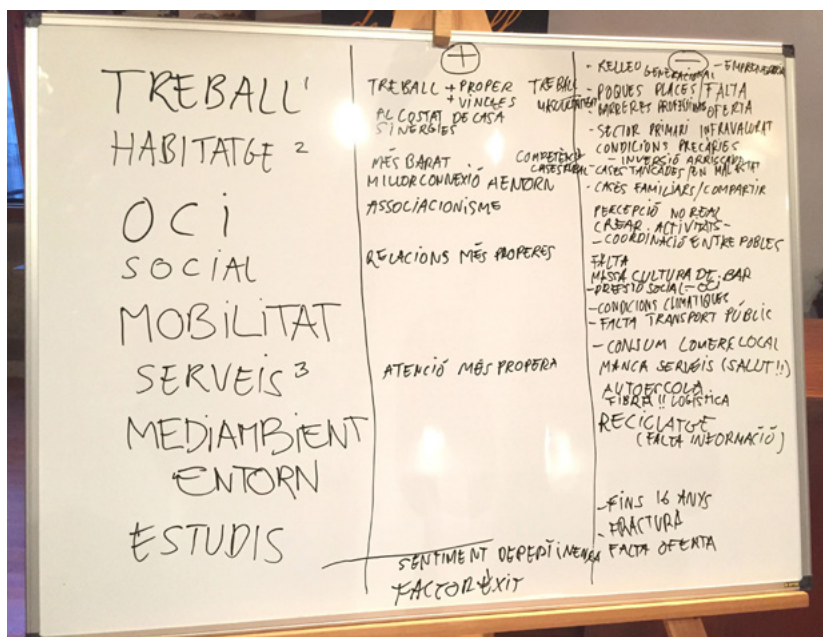 TREBALL¹
HABITATGE ²
OCI
SOCIAL
MOBILITAT
SERVEIS ³
MEDIAMBIENT
ENTORN
ESTUDIS
+
TREBALL + PROPER TREBALL
+ VINCLES
AL COSTAT DE CASA
SINERGIES
MÉS BARAT
MILLOR CONNEXIÓ A ENTORN
ASSOCIACIONISME
RELACIONS MÉS PROPERES
ATENCIÓ MÉS PROPERA
SENTIMENT DE
FACTOR ÈXIT
-
- RELLEO GENERACIONAL - EMPRENEDORIA
- POQUES PLACES/FALTA
OFERTA
- SECTOR PRIMARI INFRAVALORAT
CONDICIONS PRECÀRIES
- INVERSIÓ
- CASES TANCADES/EN MAL ESTAT
- CASES FAMILIARS/COMPARTIR
PERCEPCIÓ NO REAL
CREAR ACTIVITATS -
- COORDINACIÓ ENTRE POBLES
FALTA
MASSA CULTURA DE BAR
- PRESSIÓ SOCIAL - OCI
- CONDICIONS CLIMÀTIQUES
- FALTA TRANSPORT PÚBLIC
- CONSUM COMERÇ LOCAL
MANCA SERVEIS (SALUT!!)
AUTOESCOLA
FIBRA!! LOGÍSTICA
RECICLATGE
(FALTA INFORMACIÓ)
- FINS 16 ANYS
- FRACTURA
FALTA OFERTA